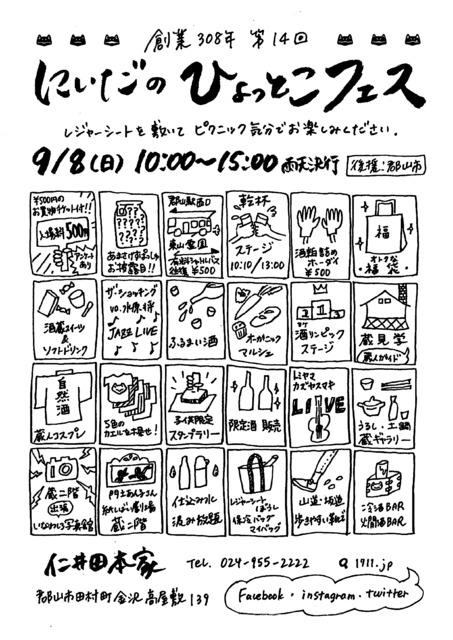 創業308年 第14回
にいだの ひょっとこフェス
レジャーシートを敷いて ピクニック気分でお楽しみください。
9/8(日) 10:00〜15:00 雨天決行 後援:郡山市
¥500円の
お買物チケット付!!
入場料500円
アンケート
あり
????
お披露目!!
郡山駅西口
東山霊園
有料シャトルバス
往復 ¥500
乾杯
ステージ
10:10/13:00
酒粕詰め
ホーダイ
¥500
福
オトクな
福袋
酒蔵スイーツ
&
ソフトドリンク
ザ・ショッキング
vo.水原将
JAZZ LIVE
ふるまい酒
オーガニック
マルシェ
酒リンピック
ステージ
蔵見学
蔵人ガイド
自然酒
蔵人コスプレ
5色の
カエルを探せ!
子供限定
スタンプラリー
限定酒 販売
トミヤマ
カズヤスマキ
LIVE
うるし・土鍋
蔵ギャラリー
蔵二階
出張
いなわしろ写真館
門土あん子さん
紙しばい劇場
蔵二階
仕込み水
汲み放題
レジャーシート
ぼうし
保冷バッグ
マイバッグ
山道・坂道
歩きやすい靴で
冷酒BAR
燗酒BAR
仁井田本家 TEL. 024-955-2222 1711.jp
郡山市田村町金沢高屋敷139
Facebook・instagram・twitter